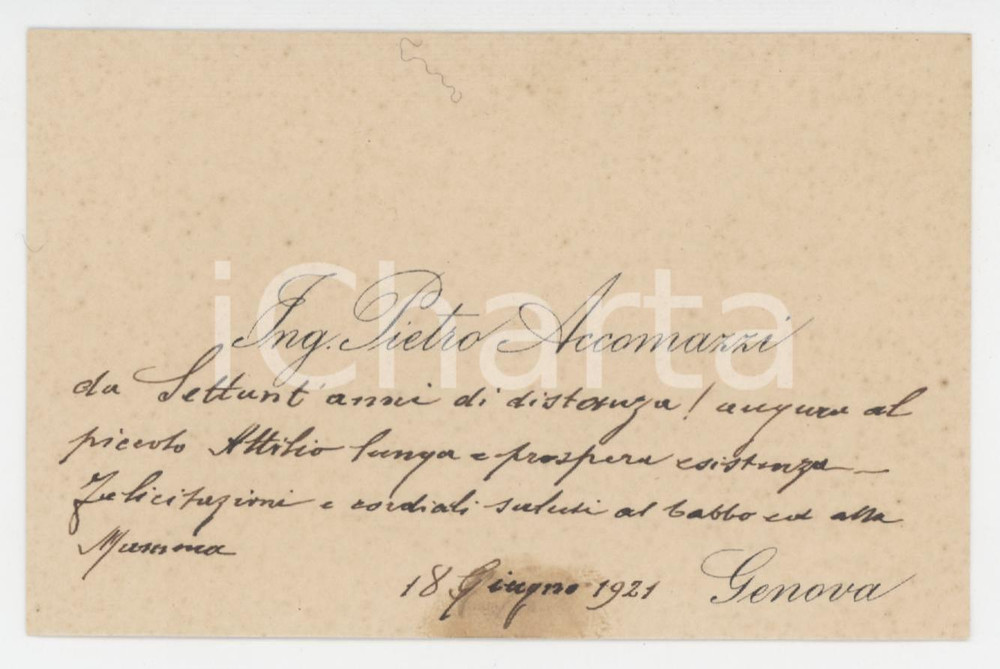 iCharta
Ing. Pietro Accomazzi
da Settant'anni di distanza! augura al
piccolo Attilio lunga e prospera esistenza –
Felicitazioni e cordiali saluti al babbo ed alla
Mamma
18 Giugno 1921
Genova